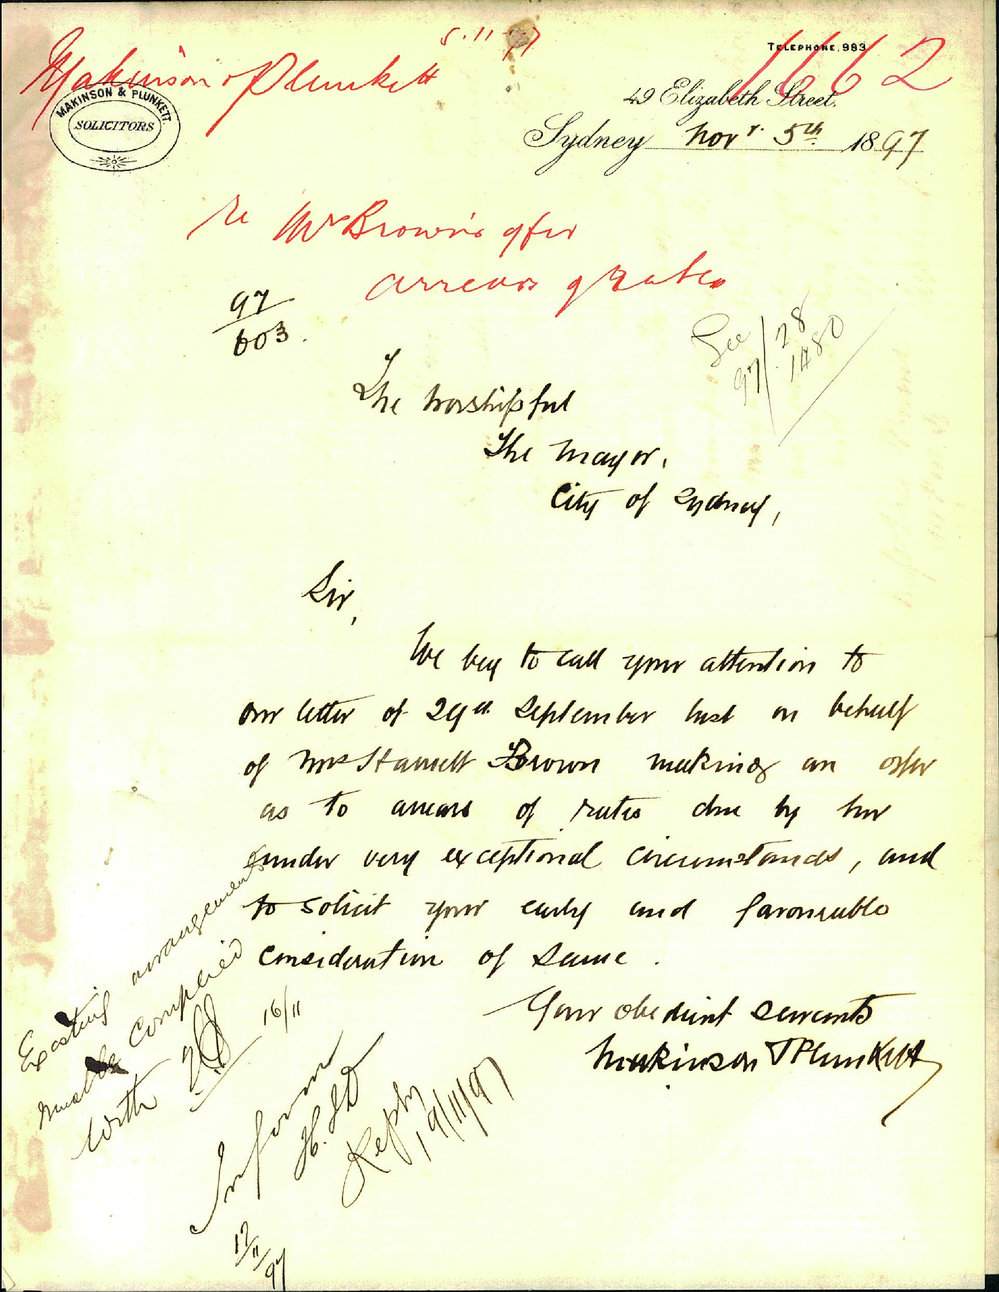 Makinson & Plunkett
5.11.97
1662
TELEPHONE. 983
MAKINSON & PLUNKETT.
SOLICITORS
49 Elizabeth Street.
Sydney Novr. 5th 1897
re Mrs Brown's offer
arrears of Rates
97
603.
See
97/28
1480
The Worshipful
The Mayor,
City of Sydney,
Sir,
We beg to call your attention to
our letter of 29th September last on behalf
of Mrs Harriett Brown making an offer
as to arrears of rates due by her
under very exceptional circumstances, and
to solicit your early and favourable
consideration of same.
Your obedient servants
Makinson & Plunkett
Existing arrangements
must be complied
with
16/11
Inform
17/11/97
Reply
19/11/97